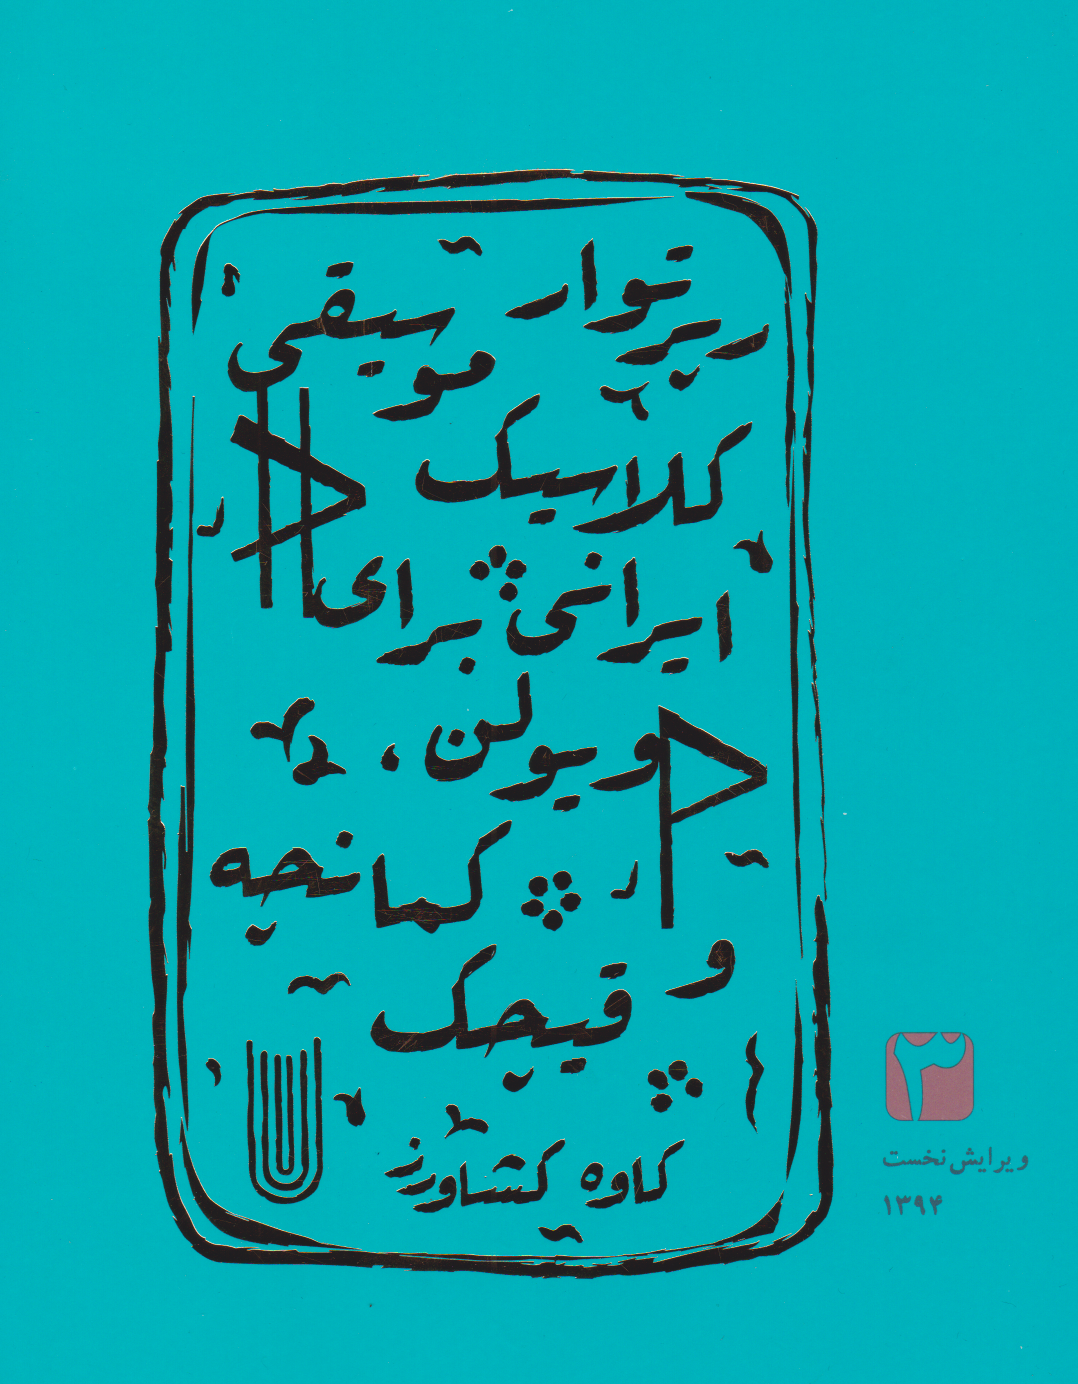 رپرتوار موسیقی
کلاسیک
ایرانی برای
ویولن،
کمانچه
و
قیچک
کاوه کشاورز
۳
ویرایش نخست
۱۳۹۴